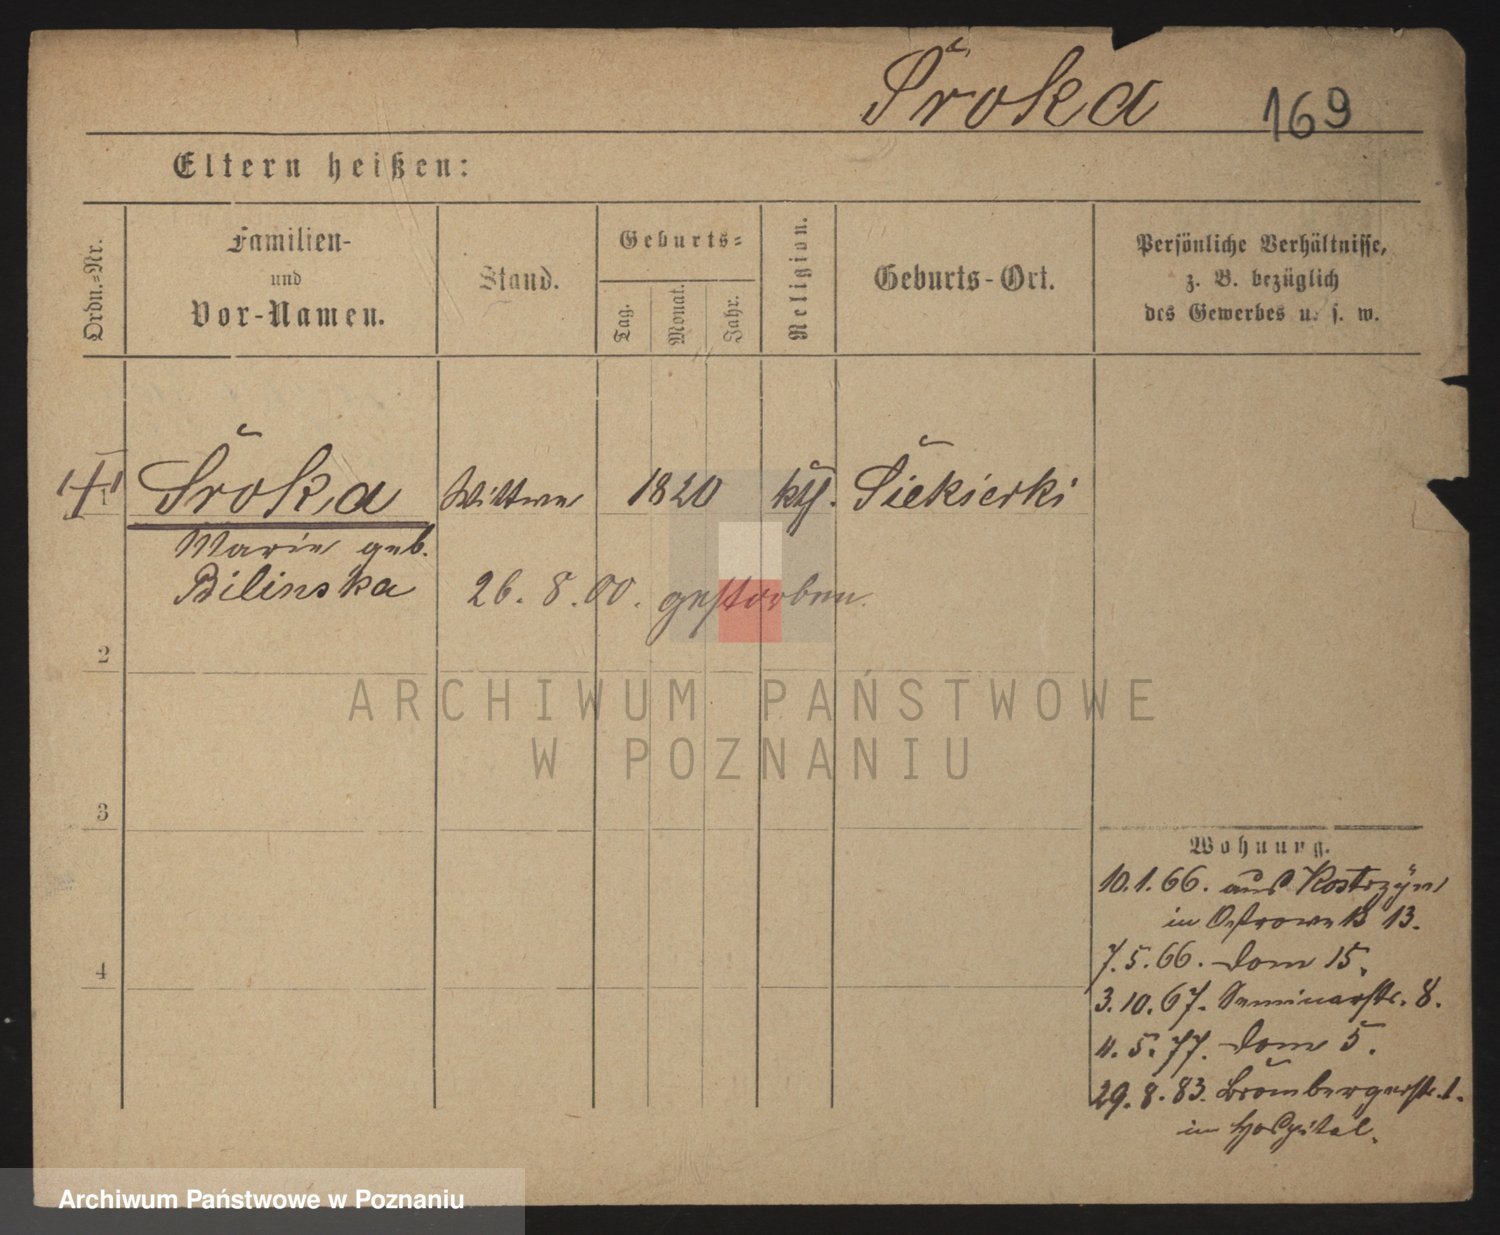 Sroka 169
Eltern heißen:
Ordn.-Nr.
Familien-
und
Vor-Namen.
Stand.
Geburts-
Tag.
Monat.
Jahr.
Religion.
Geburts-Ort.
Persönliche Verhältnisse,
z. B. bezüglich
des Gewerbes u. s. w.
1 Sroka Wittwe 1820 kth. Siekierki
Marie geb.
Bilinska 26. 8. 00. gestorben.
2
ARCHIWUM PAŃSTWOWE
W POZNANIU
3
4
Wohnung.
10.1.66. aus Kostrzyn
in Ostrowek 13.
7.5.66. Dom 15.
3.10.67. Seminarstr. 8.
4.5.77. Dom 5.
29.8.83. Brombergerstr. 1.
im Hospital.
Archiwum Państwowe w Poznaniu